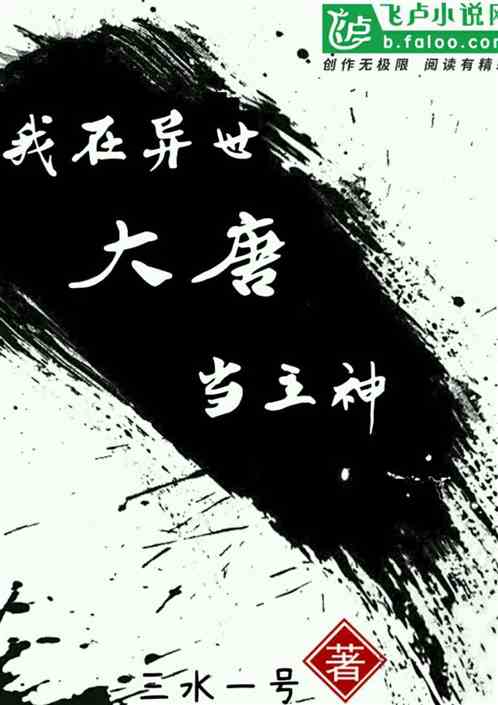 飞卢小说网
b.faloo.com
创作无极限 阅读有精
我在异世
大唐
当主神
三水一号 著